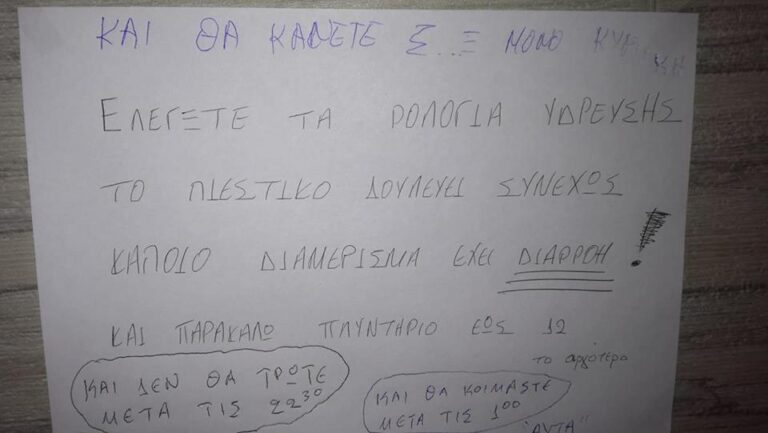 ΚΑΙ ΘΑ ΚΑΝΕΤΕ Σ...Ξ ΜΟΝΟ ΚΥΡΙΑΚΗ
ΕΛΕΓΞΕΤΕ ΤΑ ΡΟΛΟΓΙΑ ΥΔΡΕΥΣΗΣ
ΤΟ ΠΙΕΣΤΙΚΟ ΔΟΥΛΕΥΕΙ ΣΥΝΕΧΩΣ
ΚΑΠΟΙΟ ΔΙΑΜΕΡΙΣΜΑ ΕΧΕΙ ΔΙΑΡΡΟΗ!
ΚΑΙ ΠΑΡΑΚΑΛΩ ΠΛΥΝΤΗΡΙΟ ΕΩΣ 12
το αργότερο
ΚΑΙ ΔΕΝ ΘΑ ΤΡΩΤΕ
ΜΕΤΑ ΤΙΣ 22³⁰
ΚΑΙ ΘΑ ΚΟΙΜΑΣΤΕ
ΜΕΤΑ ΤΙΣ 1⁰⁰
"ΑΥΤΑ"